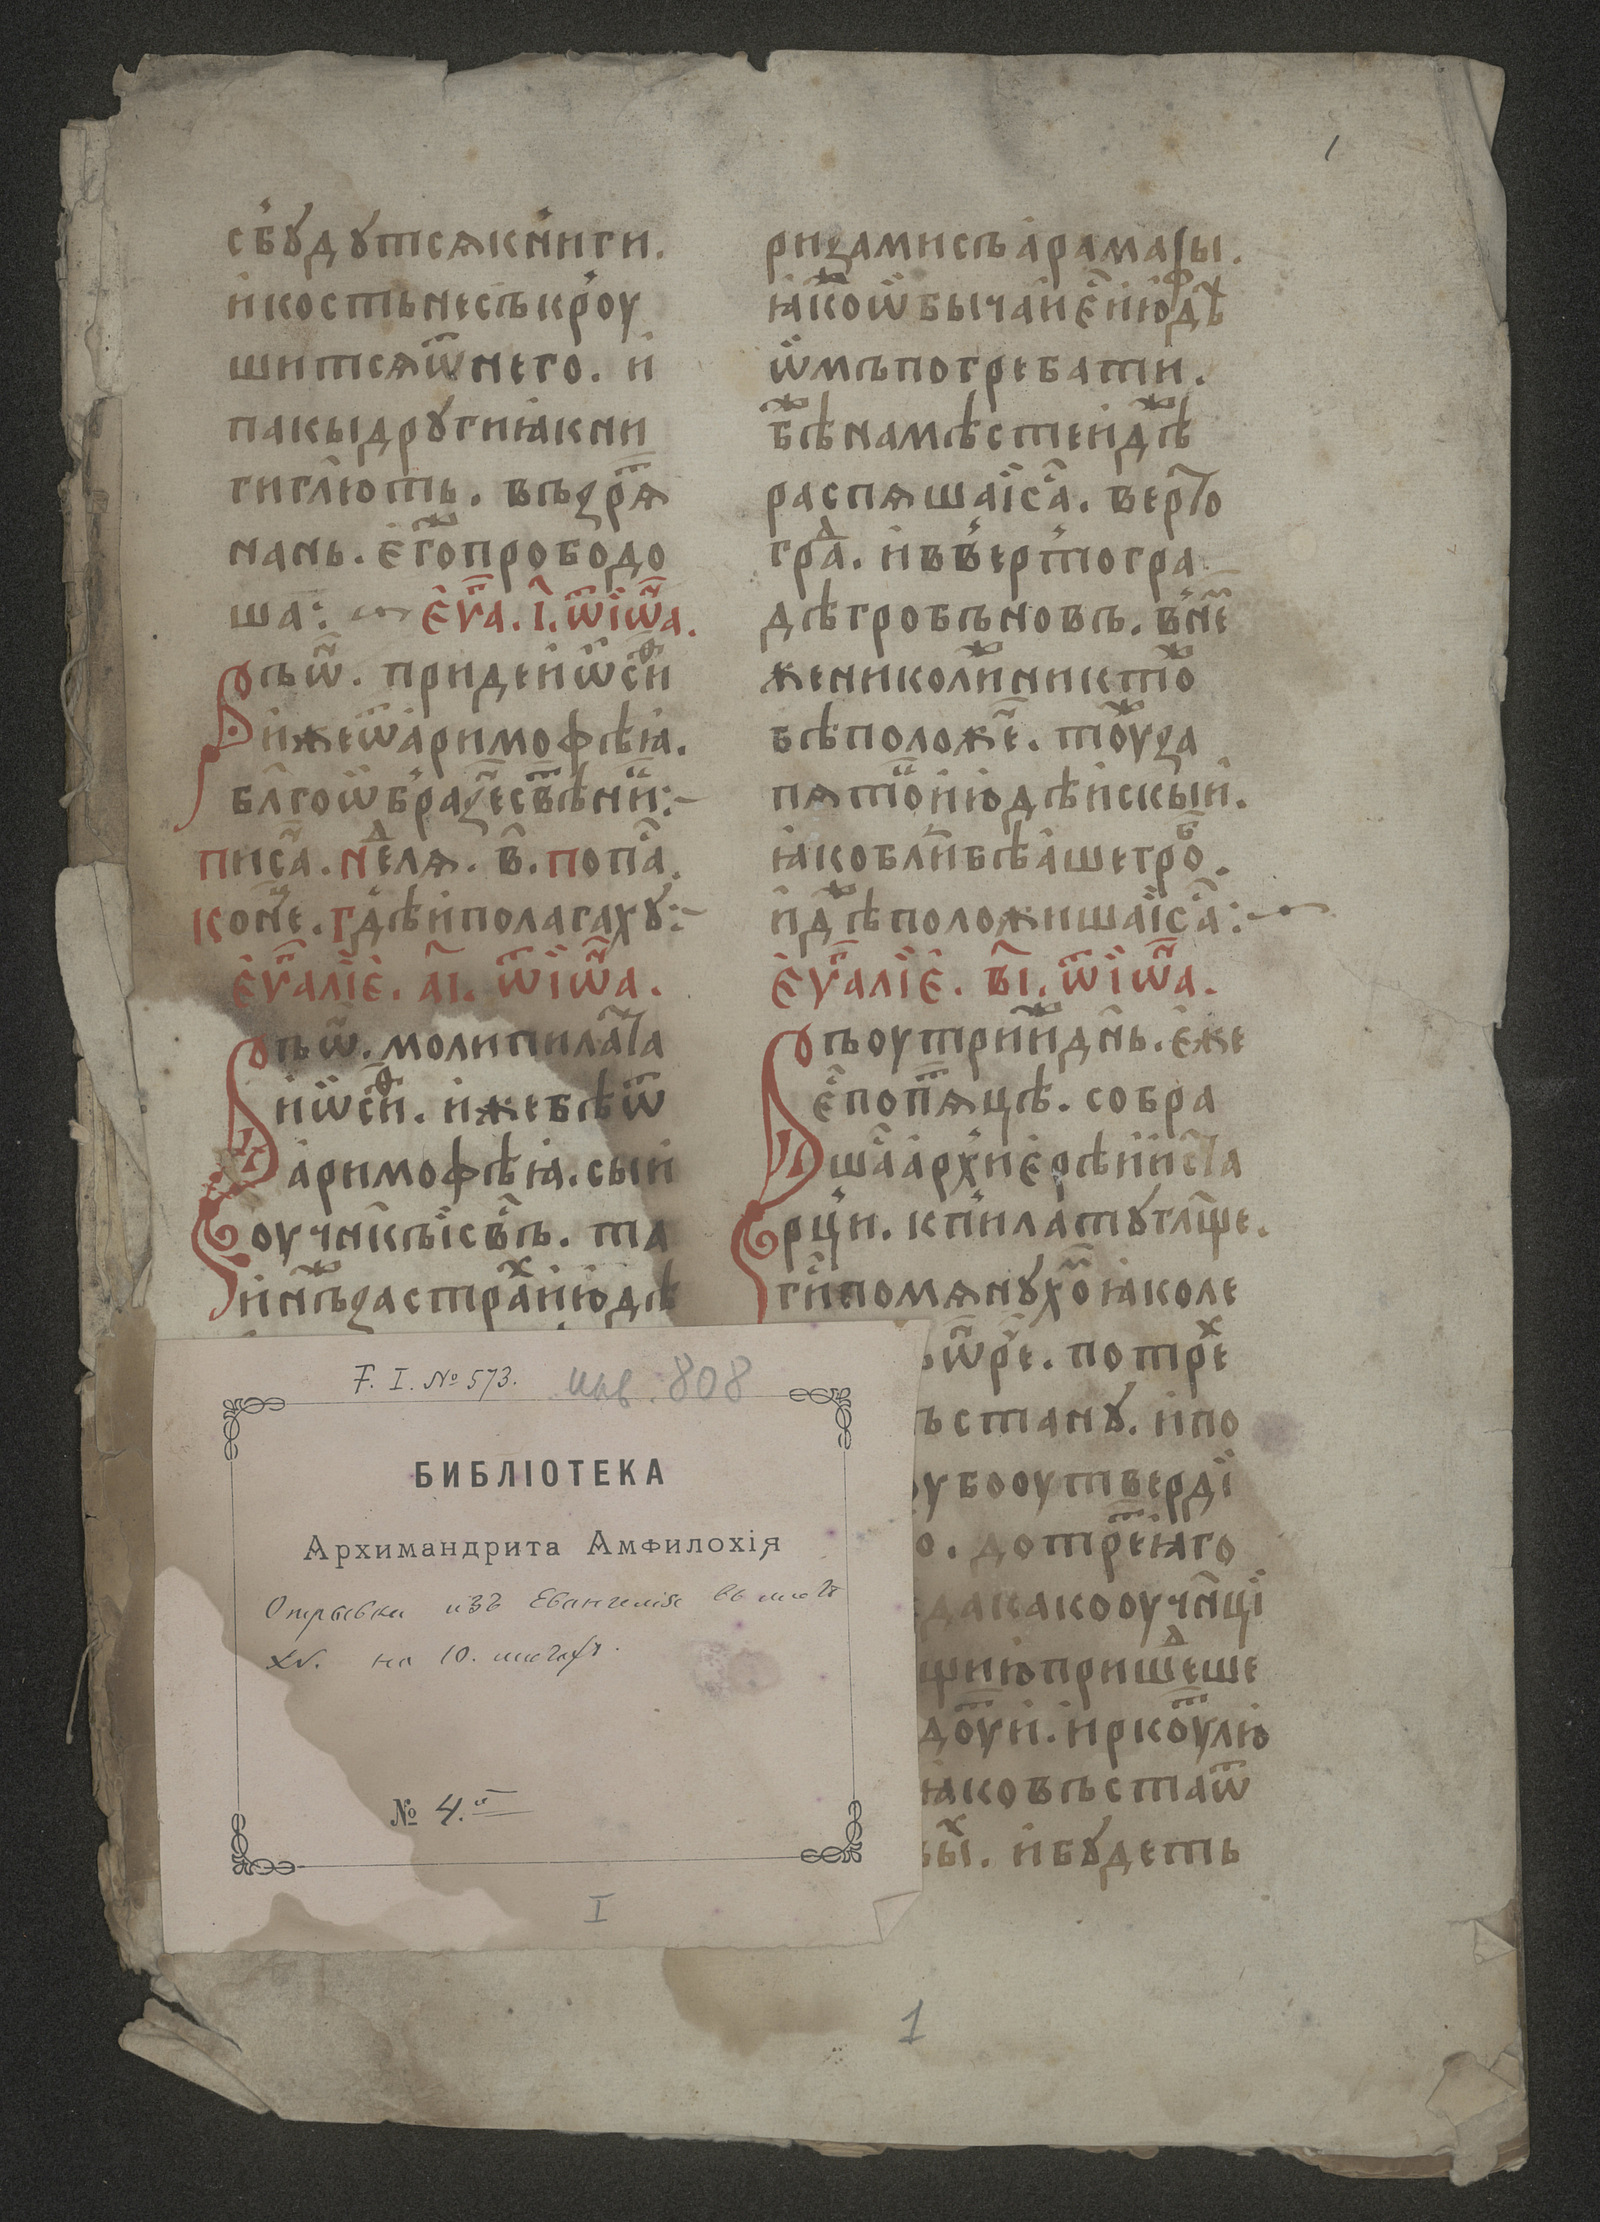 1
сбꙋдꙋтсѧкниги.
икостьнесъкроу
шитсѧѿнего. и
пакыдрꙋгиꙗкни
гигл҃ють. възрⷮѧ
нань. егоⷤпрободо
ша: еуⷢ҇а. і҃. ѿіѡⷩ҇а.
Въѡ҃. придеиѡсиⷴ
ижеѿаримофѣꙗ.
бл҃гоѡбразеⷩ҇свѣⷮниⷦ:~
писа҇. неⷣлѧ. в҃. попа҇.
конеⷰ. гдѣиполагахꙋ:~
еуⷢ҇алїе. а҃і. ѿіѡⷩ҇а.
Въѡ҃. молипилаⷭ҇та
иѡсиⷴ. ижебѣѿ
аримофѣꙗ. сыи
оучн҃къїсв҃ъ. та
инъⷤзастраⷯиюдѣ
ризамисъараматы.
ꙗкоⷤѡбычаие҇июдѣⷯ
ѡмъпогребати.
бѣⷤнамѣстеидѣⷤ
распѧшаїса҃. верто
граⷣ. иввертогра
дѣгробъновъ. внеⷨ
жениколиⷤниктоⷤ
бѣположеⷩ. тоуⷤза
пѧтоⷦиюдѣискыи.
ꙗкоблиⷥбѣашегроⷠ.
идѣⷤположишаїса҃:~
еуⷢ҇алїе. в҃і. ѿіѡⷩ҇а.
Въоутриⷤидн҃ь. еже
е҇попѧⷮцѣ. собра
шаⷭ҇архиереѣииста
рци. кпилатꙋгл҃ще.
ги҃помѧнꙋхоⷨꙗколе
ѡⷩ҇рече. потреⷯ
ъстанꙋ. ипо
убооутверді
о. дотреⷮꙗго
дакакооучн҃ці
щиюпришеⷣше
доуⷮи. иркоуⷮлю
ꙗковъстаѿ
ыⷯ. ибꙋдеть
F. I. № 573. инв. 808
БИБЛІОТЕКА
Архимандрита Амфилохія
Отрывки изъ Евангелія въ листъ
XV. на 10. листахъ.
№ 4.
I
1